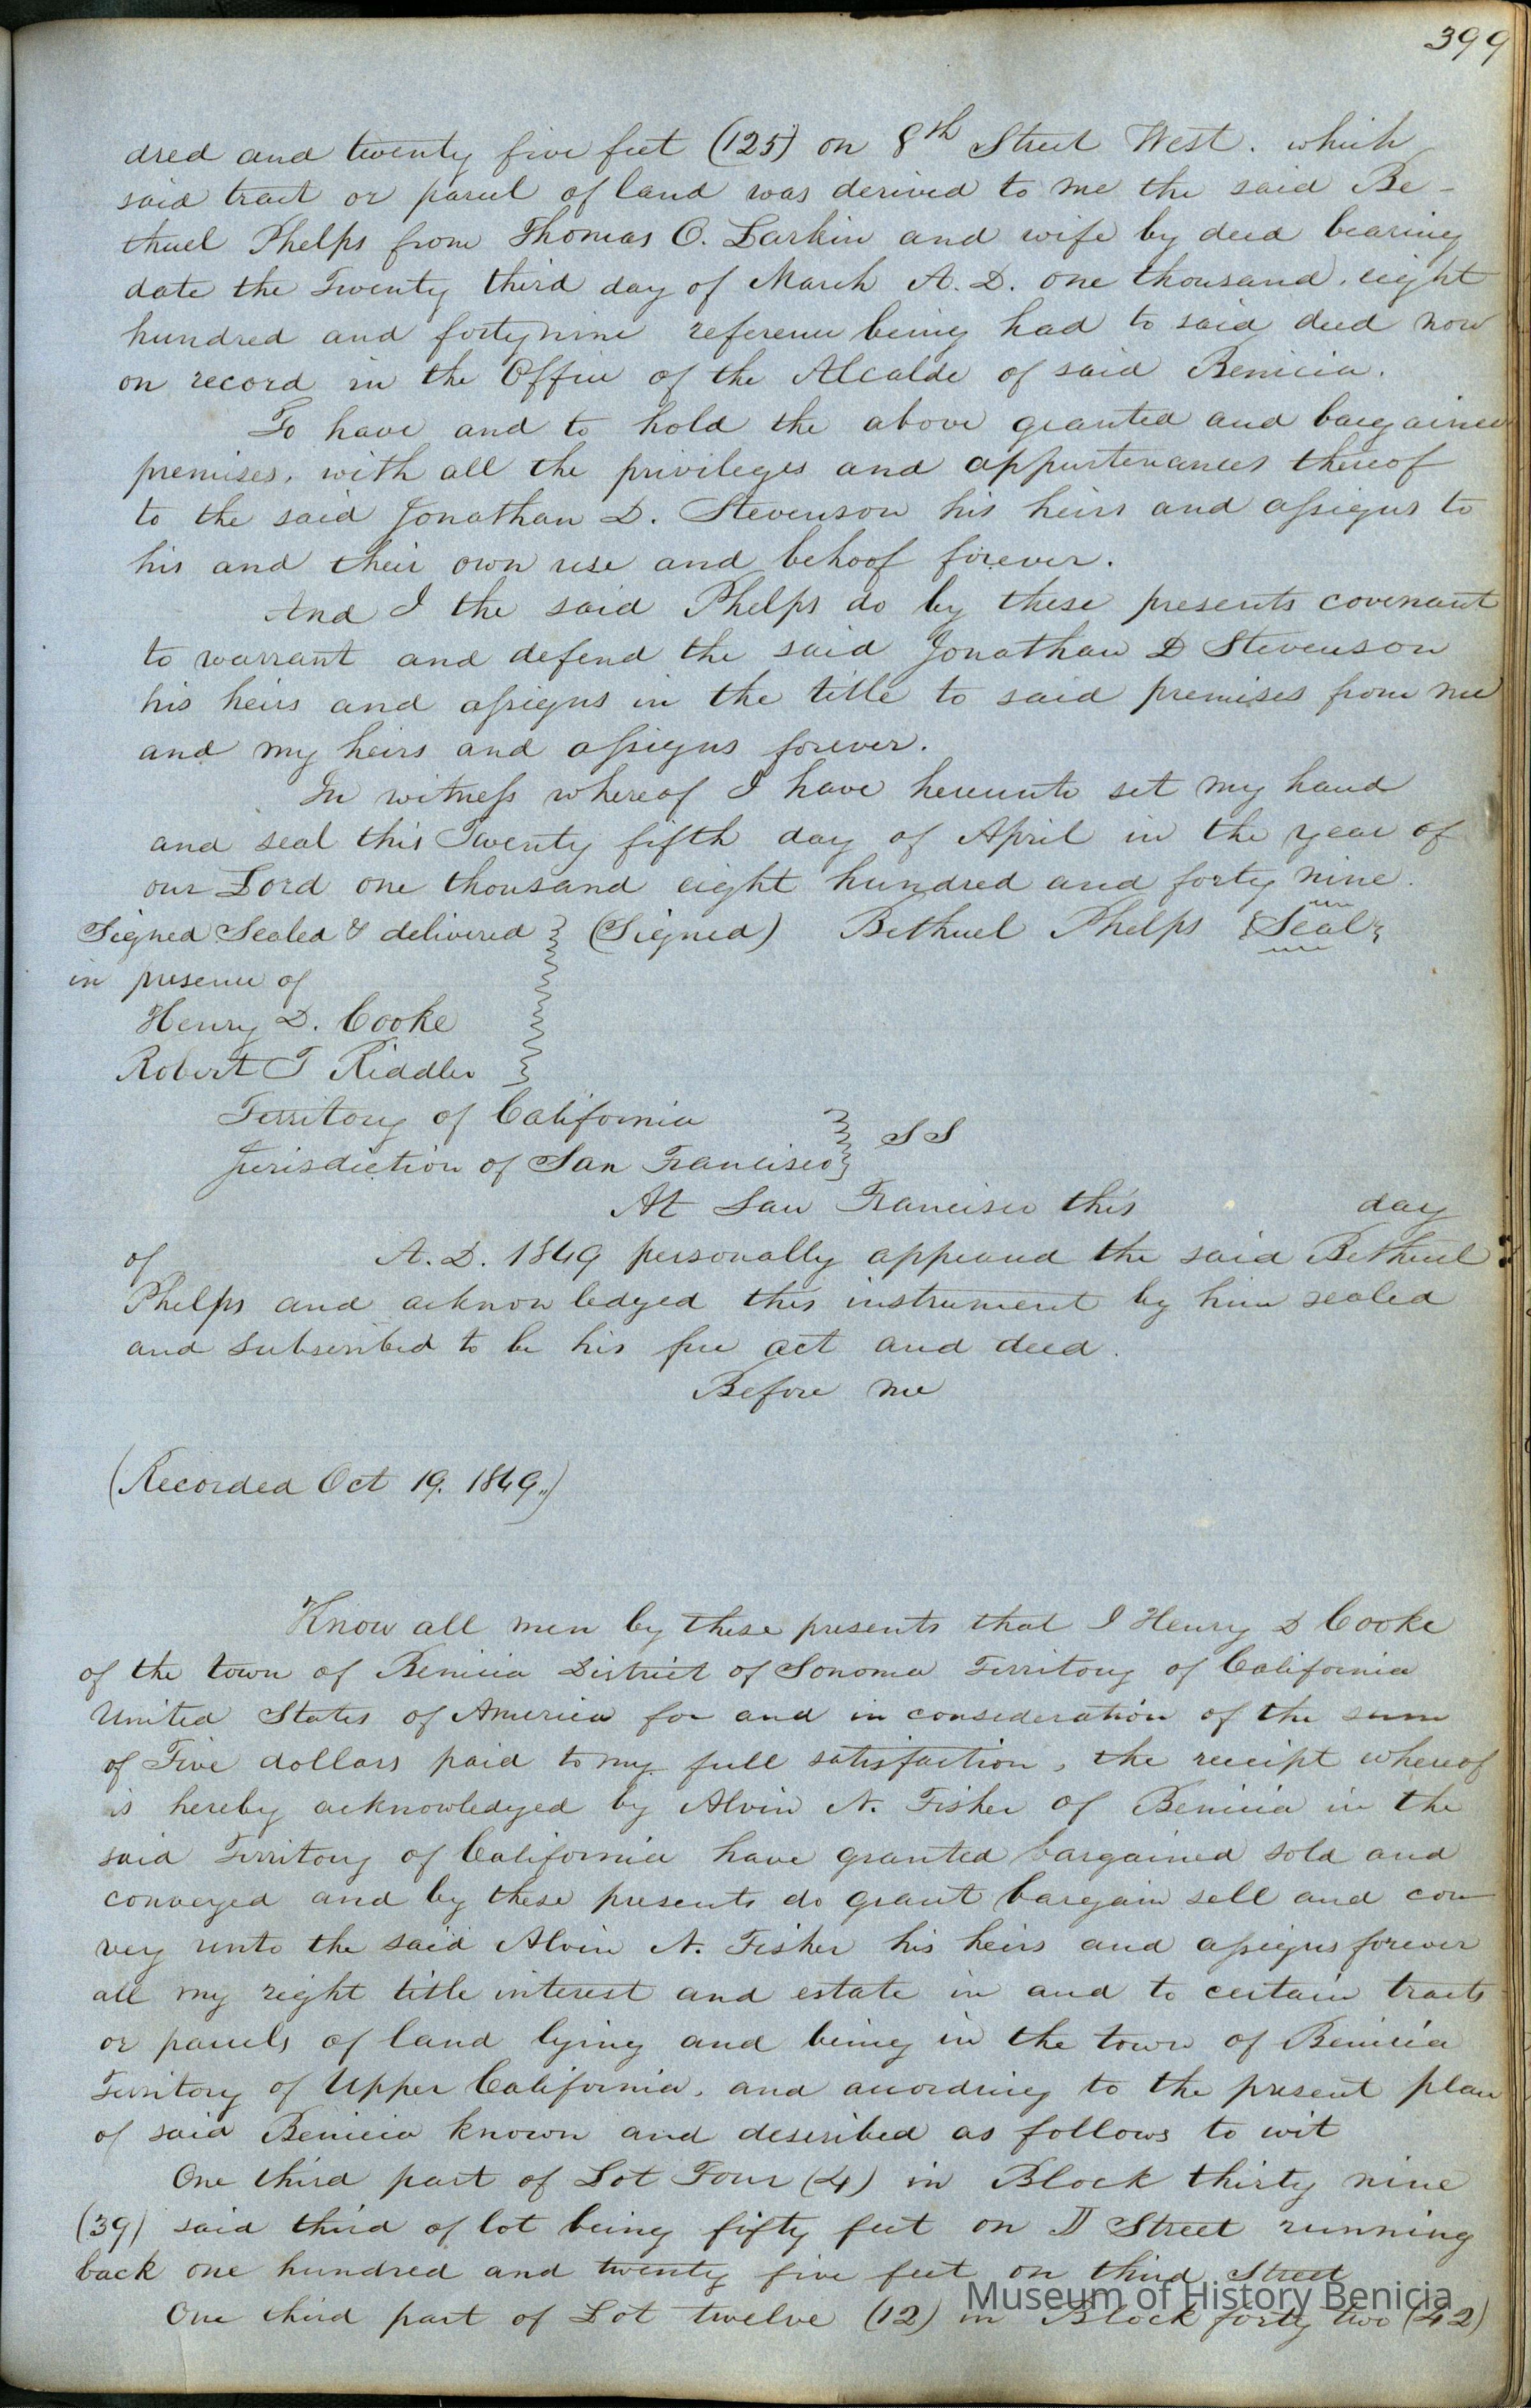 399
dred and twenty five feet (125) on 8th Street West. which
said tract or parcel of land was derived to me the said Be-
thuel Phelps from Thomas O. Larkin and wife by deed bearing
date the Twenty third day of March A. D. one thousand, eight
hundred and forty nine reference being had to said deed now
on record in the Office of the Alcalde of said Benicia.
To have and to hold the above granted and bargained
premises, with all the privileges and appurtenances thereof
to the said Jonathan D. Stevenson his heirs and assigns to
his and their own use and behoof forever.
And I the said Phelps do by these presents covenant
to warrant and defend the said Jonathan D Stevenson
his heirs and assigns in the title to said premises from me
and my heirs and assigns forever.
In witness whereof I have hereunto set my hand
and seal this Twenty fifth day of April in the year of
our Lord one thousand eight hundred and forty nine.
Signed Sealed & delivered } (Signed) Bethuel Phelps {Seal}
in presence of
Henry D. Cooke
Robert T Riddler
Territory of California
Jurisdiction of San Francisco } SS
At San Francisco this day
of A. D. 1849 personally appeared the said Bethuel
Phelps and acknowledged this instrument by him sealed
and subscribed to be his free act and deed.
Before me
(Recorded Oct 19. 1849.,)
Know all men by these presents that I Henry D Cooke
of the town of Benicia District of Sonoma Territory of California
United States of America for and in consideration of the sum
of Five dollars paid to my full satisfaction, the receipt whereof
is hereby acknowledged by Alvin N. Fisher of Benicia in the
said Territory of California have granted bargained sold and
conveyed and by these presents do grant bargain sell and con
vey unto the said Alvin N. Fisher his heirs and assigns forever
all my right title interest and estate in and to certain tracts
or parcels of land lying and being in the town of Benicia
Territory of Upper California, and according to the present plan
of said Benicia known and described as follows to wit
One third part of Lot Four (4) in Block thirty nine
(39) said third of lot being fifty feet on D Street running
back one hundred and twenty five feet on third Street
One third part of Lot twelve (12) in Block forty two (42)
Museum of History Benicia